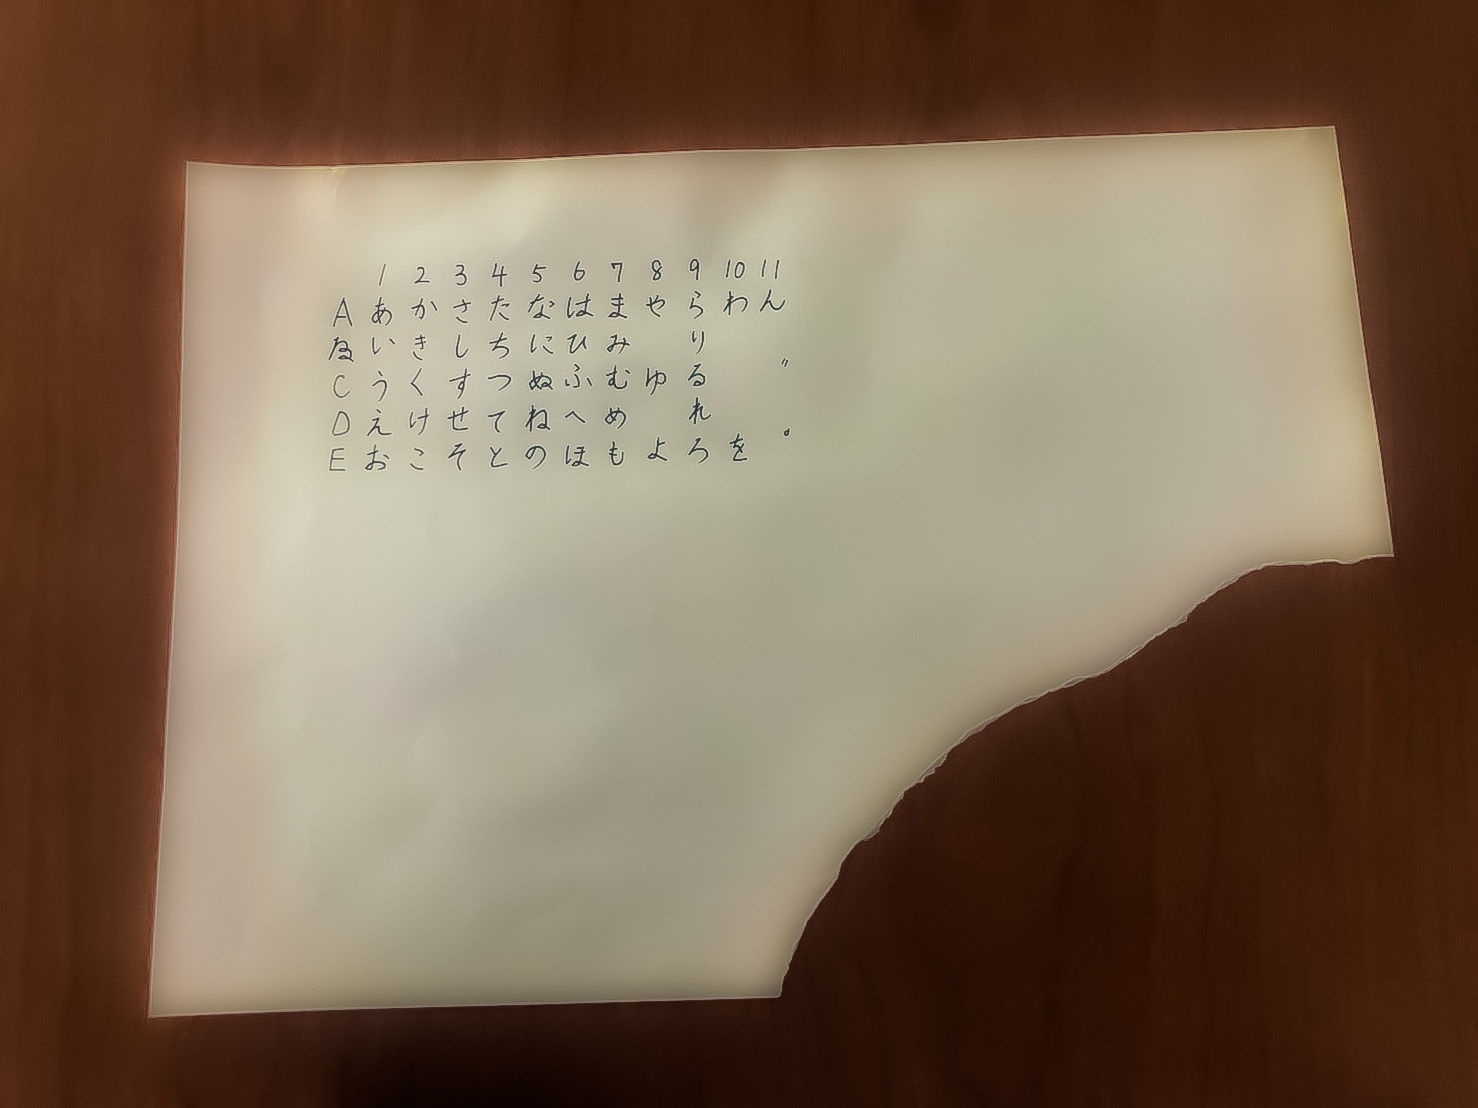 1 2 3 4 5 6 7 8 9 10 11
A あ か さ た な は ま や ら わ ん
B い き し ち に ひ み り
C う く す つ ぬ ふ む ゆ る ゛
D え け せ て ね へ め れ
E お こ そ と の ほ も よ ろ を ゜